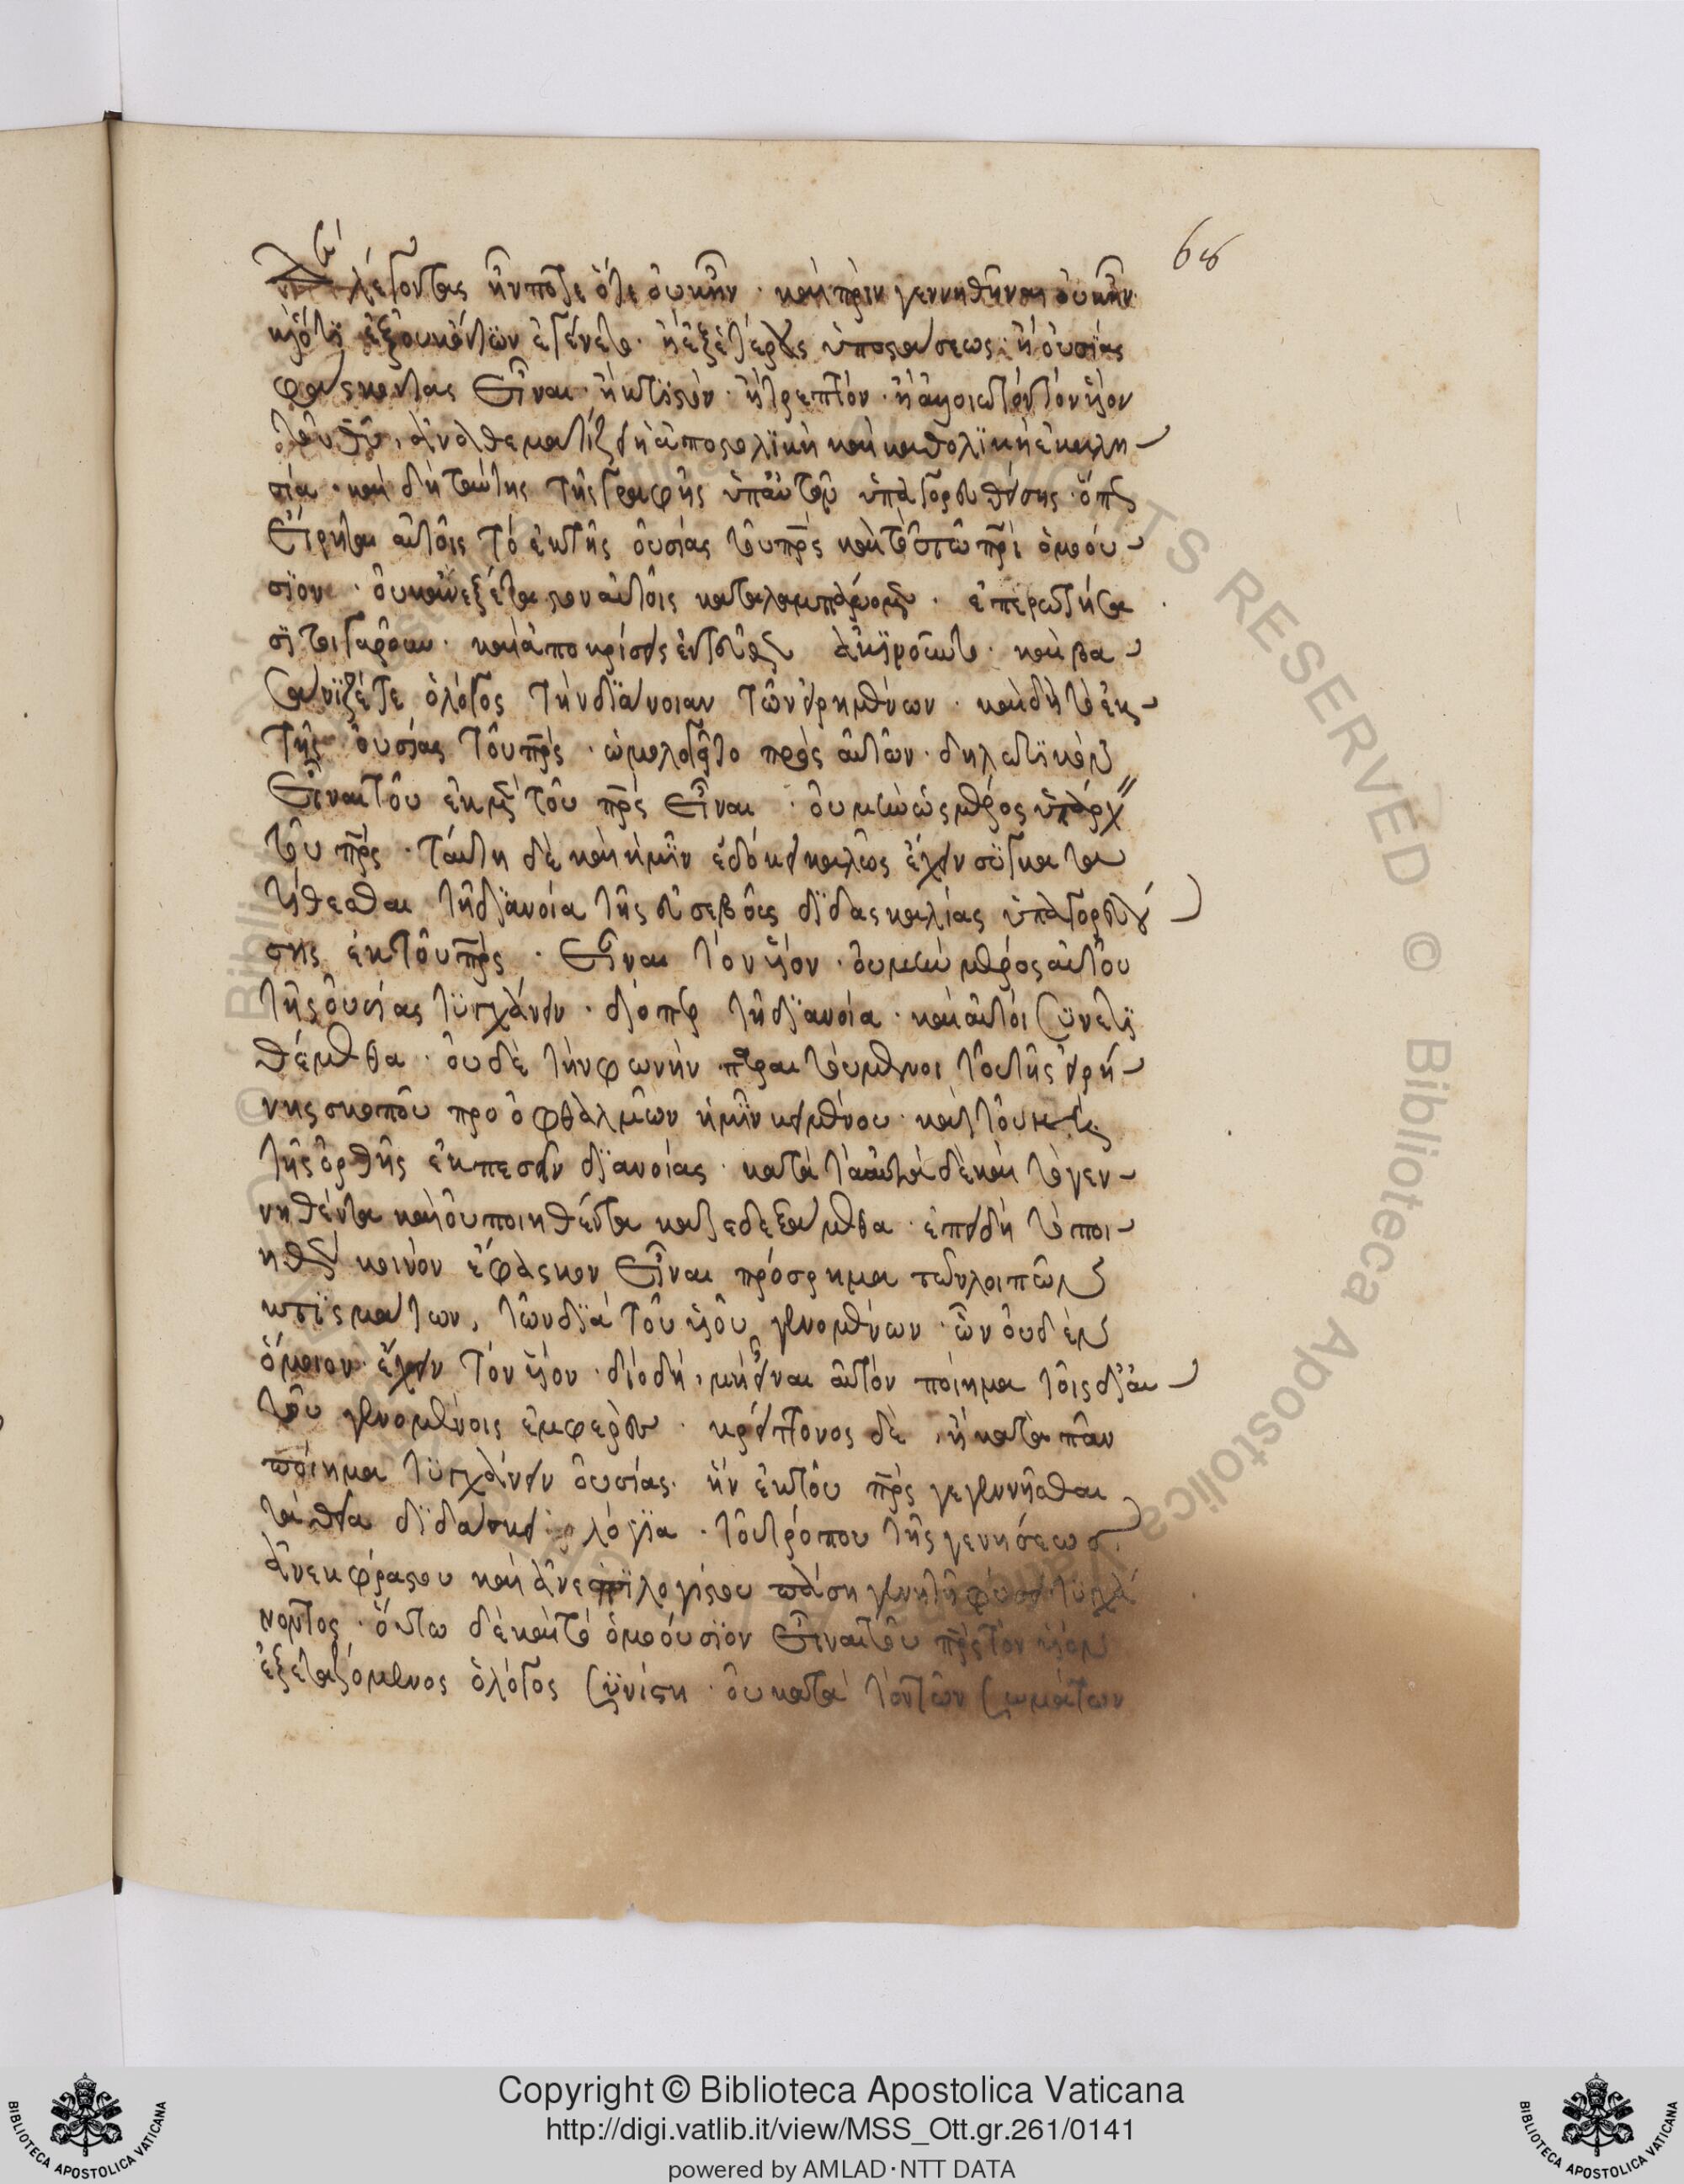 68
λέγοντας ἦν ποτε ὅτε οὐκ ἦν · καὶ πρὶν γεννηθῆναι οὐκ ἦν ·
ἢ ὅτι ἐξ οὐκ ὄντων ἐγένετο · ἢ ἐξ ἑτέρας ὑποστάσεως · ἢ οὐσίας
φάσκοντας εἶναι · ἢ κτιστὸν · ἢ τρεπτόν · ἢ ἀλλοιωτὸν τὸν υἱὸν
τοῦ θ̅υ̅, ἀναθεματίζει ἡ ἀποστολικὴ καὶ καθολικὴ ἐκκλη
σία · καὶ δὴ ταύτης τῆς γραφῆς ὑπ αὐτῶν ὑπαγορευθείσης · ὅπως
εἴρηται αὐτοῖς τὸ ἐκ τῆς οὐσίας τοῦ π̅ρ̅ς̅ καὶ τὸ τῶ π̅ρ̅ι̅ ὁμοού
σιον · οὐκ ἀνεξέταστον αὐτοῖς καταλιμπάνομεν · ἐπερωτήσεις
τοιγαροῦν · καὶ ἀποκρίσεις ἐντεῦθεν ἀνεκινοῦντο · καὶ βα
σανίζεται ὁ λόγος τὴν διάνοιαν τῶν εἰρημένων · καὶ δὴ τὸ ἐκ
τῆς οὐσίας τοῦ π̅ρ̅ς̅ · ὡμολογεῖτο πρὸς αὐτῶν · δηλωτικὸν
εἶναι τοῦ ἐκ μὲν τοῦ π̅ρ̅ς̅ εἶναι · οὐ μὴν ὡς μέρος ὑπάρχειν
τοῦ π̅ρ̅ς̅ · ταύτη δὲ καὶ ἡμῖν ἐδόκει καλῶς ἔχειν συγκατα
τίθεσθαι τῆ διανοία τῆς εὐσεβοῦς διδασκαλίας ὑπαγορευού
σης ἐκ τοῦ π̅ρ̅ς̅ · εἶναι τὸν υἱόν · οὐ μὴν μέρος αὐτοῦ
τῆς οὐσίας τυγχάνειν · διόπερ τῆ διανοία · καὶ αὐτοὶ συνετι
θέμεθα · οὐδὲ τὴν φωνὴν παραιτούμενοι τοῦ τῆς εἰρή
νης σκοποῦ πρὸ ὀφθαλμῶν ἡμῖν κειμένου · καὶ τοῦ μὴ
τῆς ὀρθῆς ἐκπεσεῖν διανοίας · κατὰ τὰ αὐτὰ δὲ καὶ τὸ γεν
νηθέντα καὶ οὐ ποιηθέντα κατεδεξάμεθα · ἐπειδὴ τὸ ποι
ηθὲν κοινὸν ἔφασκον εἶναι πρόσρημα τῶν λοιπῶν
κτισμάτων, τῶν διὰ τοῦ υἱοῦ γενομένων · ὧν οὐδὲν
ὅμοιον ἔχειν τὸν υἱόν · διὸ δὴ, μὴ εἶναι αὐτὸν ποίημα τοῖς δι αὐ
τοῦ γενομένοις ἐμφερὲς · κρείττονος δὲ, ἢ κατὰ πᾶν
ποίημα τυγχάνειν οὐσίας · ἣν ἐκ τοῦ π̅ρ̅ς̅ γεγεννῆσθαι
τὰ θεῖα διδάσκει λόγια · τοῦ τρόπου τῆς γεννήσεως
ἀνεκφράστου καὶ ἀνεπιλογίστου πάση γενητῆ φύσει τυγχά
νοντος · οὕτω δὲ καὶ τὸ ὁμοούσιον εἶναι τοῦ π̅ρ̅ς̅ τὸν υἱὸν
ἐξεταζόμενος ὁ λόγος συνίστη · οὐ κατὰ τὸν τῶν σωμάτων
Copyright © Biblioteca Apostolica Vaticana
http://digi.vatlib.it/view/MSS_Ott.gr.261/0141
powered by AMLAD·NTT DATA
BIBLIOTECA APOSTOLICA VATICANA
BIBLIOTECA APOSTOLICA VATICANA